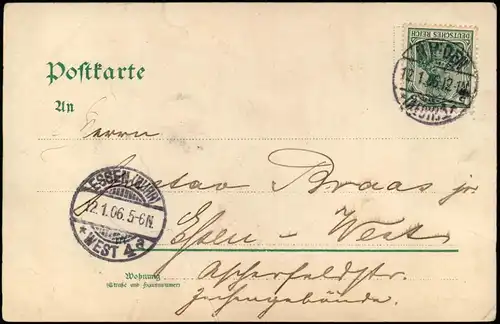 DEUTSCHES REICH
12.1.06.12
Postkarte
An
Herrn
Gustav Braas jr.
ESSEN (RUHR)
12.1.06.5-6N.
* WEST 4a
Essen - West
Wohnung
(Straße und Hausnummer)